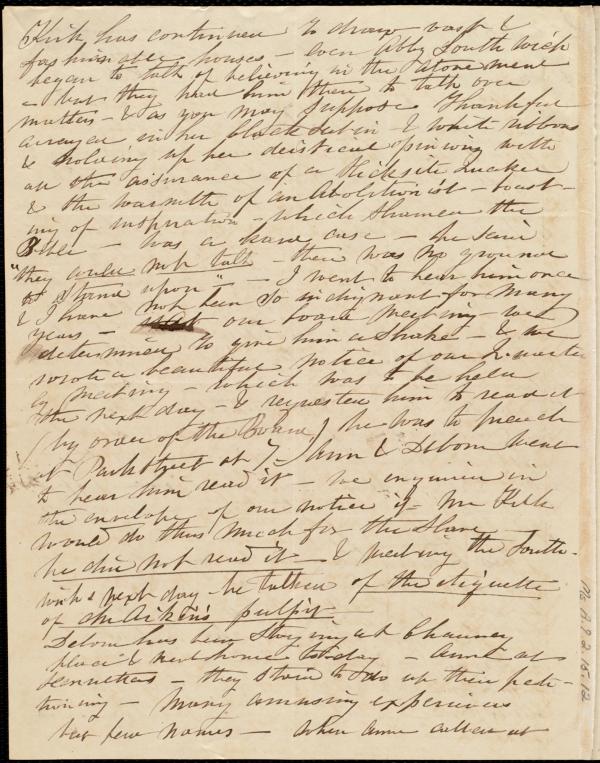 Kirk has continued to draw vast &
fashionable houses – even Abby Southwick
began to talk of believing in the atonement
– but they had him there to talk over
matters – & as you may suppose Thankful
arrayed in her black satin & white ribbons
& holding up her deistical opinions with
all the assurance of a Hicksite Quaker
& the warmth of an Abolitionist – boast-
ing of inspiration – which shamed the
Bible – was a hard case – he said
"they could not talk – there was no ground
to stand upon" – I went to hear him once
& I have not been so indignant for many
years – our board meeting – we
determined to give him a shake – & we
wrote a beautiful notice of our Quarter
ly Meeting – which was to be held
the next day – & requested him to read it
(by order of the Board) he was to preach
at Park Street at 7 – Ann & Deborn went
to hear him read it – we enquired in
the envelope of our notice if Mr Kirk
would do thus much for the Slave
he did not read it – & meeting the South-
wicks next day – he talked of the etiquette
of Mr Aikin's pulpit
Deborn has been staying at Chauncy
place & went home to-day – Anne at
– they strive to do up their peti-
tioning – many amusing experiences
but few names – when Anne called at
Ms. A.9.2.15.12